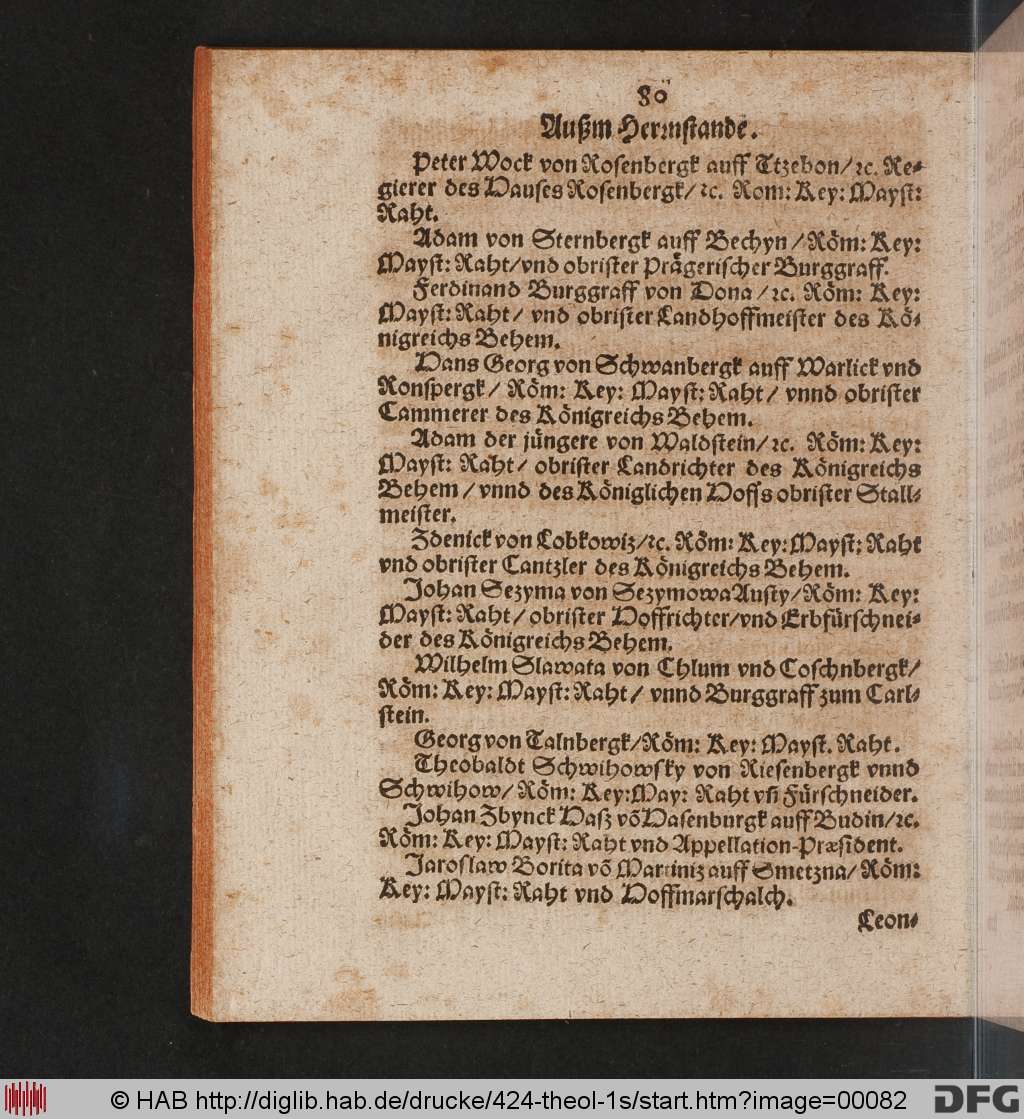 80
Außm Herrnstande.
Peter Wock von Rosenbergk auff Ttzebon/ ꝛc. Re⸗
gierer des Hauses Rosenbergk/ ꝛc. Rom: Key: Mayst:
Raht.
Adam von Sternbergk auff Bechyn /Röm: Key:
Mayst: Raht/vnd obrister Prägerischer Burggraff.
Ferdinand Burggraff von Dona /ꝛc. Röm: Key:
Mayst: Raht/ vnd obrister Landhoffmeister des Kö⸗
nigreichs Behem.
Hans Georg von Schwanbergk auff Warlick vnd
Ronspergk/ Röm: Key: Mayst: Raht/ vnnd obrister
Cammerer des Königreichs Behem.
Adam der jüngere von Waldstein/ꝛc. Röm: Key:
Mayst: Raht/ obrister Landrichter des Königreichs
Behem /vnnd des Königlichen Hoffs obrister Stall⸗
meister.
Zdenick von Lobkowiz/ꝛc. Röm: Key: Mayst: Raht
vnd obrister Cantzler des Königreichs Behem.
Johan Sezyma von Sezymowa Austy/Röm: Key:
Mayst: Raht/ obrister Hoffrichter/vnd Erbfürschnei⸗
der des Königreichs Behem.
Wilhelm Slawata von Chlum vnd Coschnbergk/
Röm: Key: Mayst: Raht/ vnnd Burggraff zum Carl⸗
stein.
Georg von Talnbergk/Röm: Key: Mayst. Raht.
Theobaldt Schwihowsky von Riesenbergk vnnd
Schwihow/ Röm: Key:May: Raht vñ Fürschneider.
Johan Zbynck Hasz võ Hasenburgk auff Budin/ꝛc.
Röm: Key: Mayst: Raht vnd Appellation-Præsident.
Jaroslaw Borita võ Martiniz auff Smetzna/ Röm:
Key: Mayst: Raht vnd Hoffmarschalch.
Leon⸗
© HAB http://diglib.hab.de/drucke/424-theol-1s/start.htm?image=00082
DFG